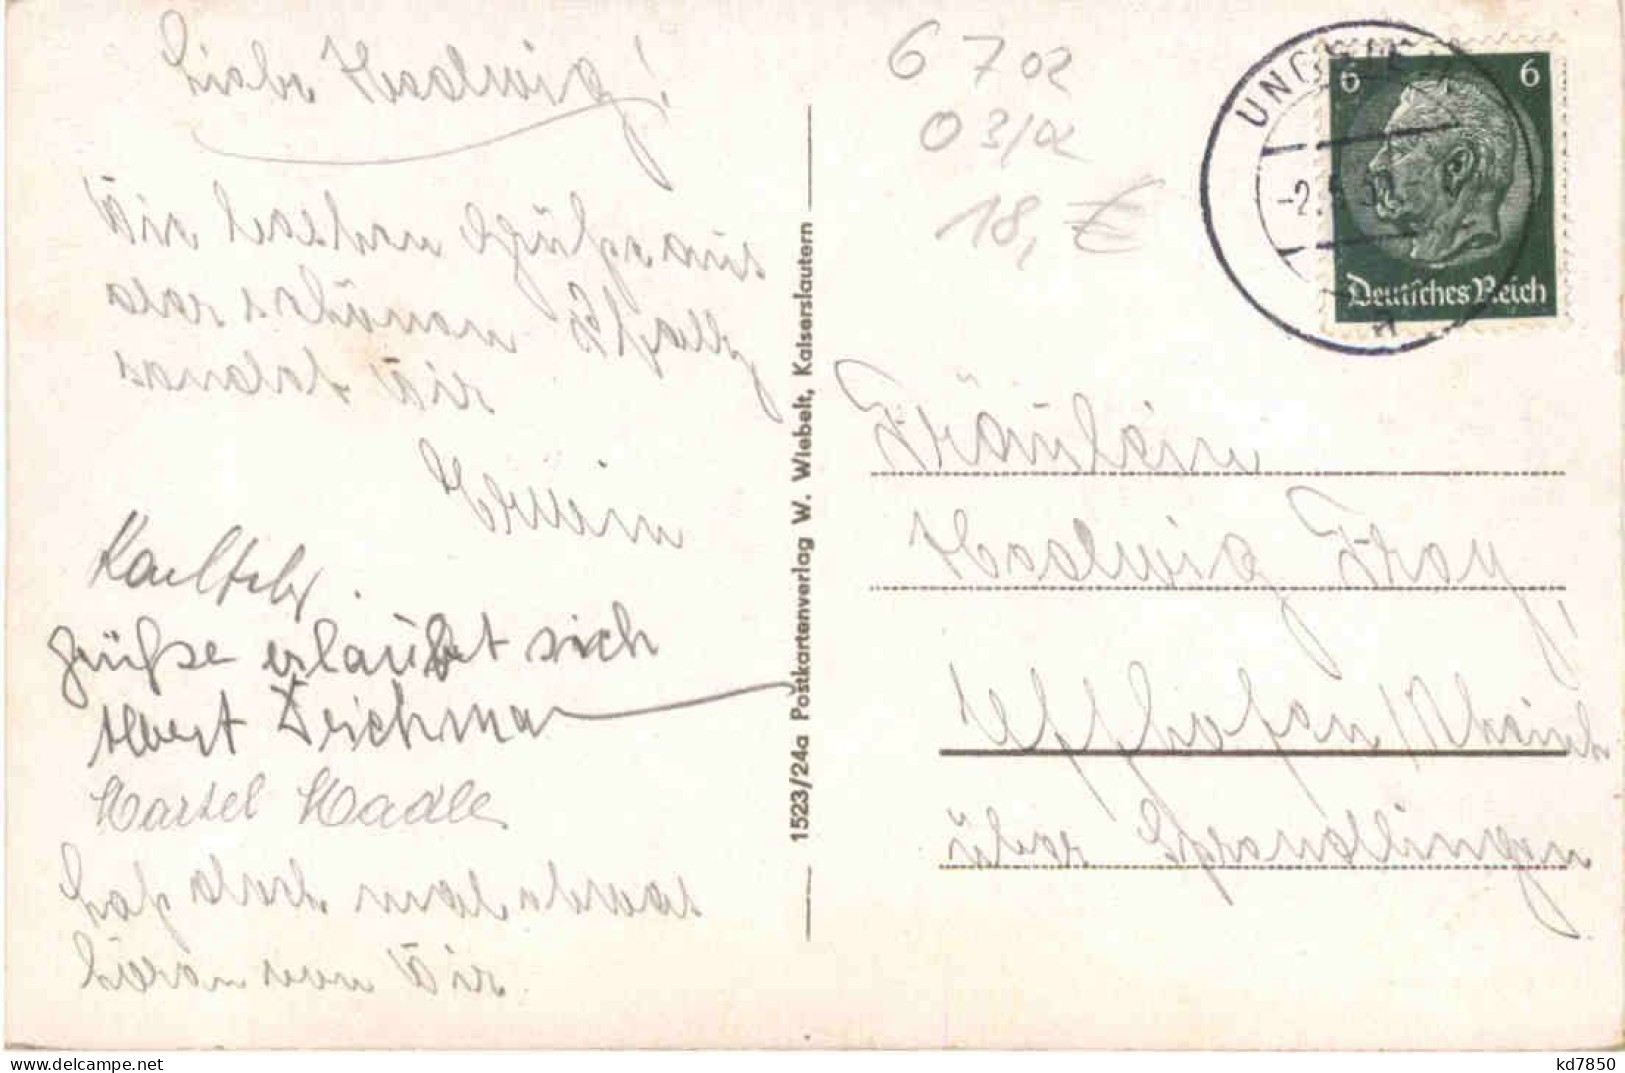 Liebe Hedwig!
Dir liebe Grüße aus
der schönen Pfalz
sendet Dir
Erwin
Karl
Grüße erlaubt sich
Albert Deichmann
Martel Madle
Laß doch mal etwas
hören von Dir
1523/24a Postkartenverlag W. Wiebelt, Kaiserslautern
6 7 02
03/02
18,- €
6 6
Deutsches Reich
UNGSTEIN
Fräulein
Hedwig Frey
Uffhofen/Rheinh
über Sprendlingen
kd7850